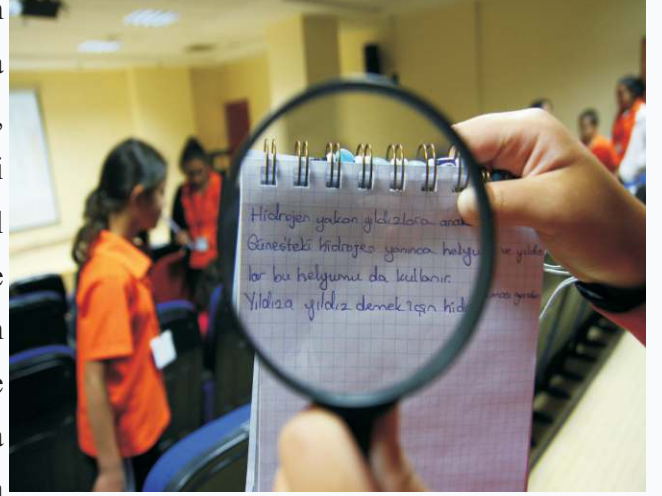 Hidrojen yakan yıldızlara ana
Güneş'teki hidrojen yanınca helyu ve yıldız
lar bu helyumu da kullanır.
Yıldıza yıldız demek için hid